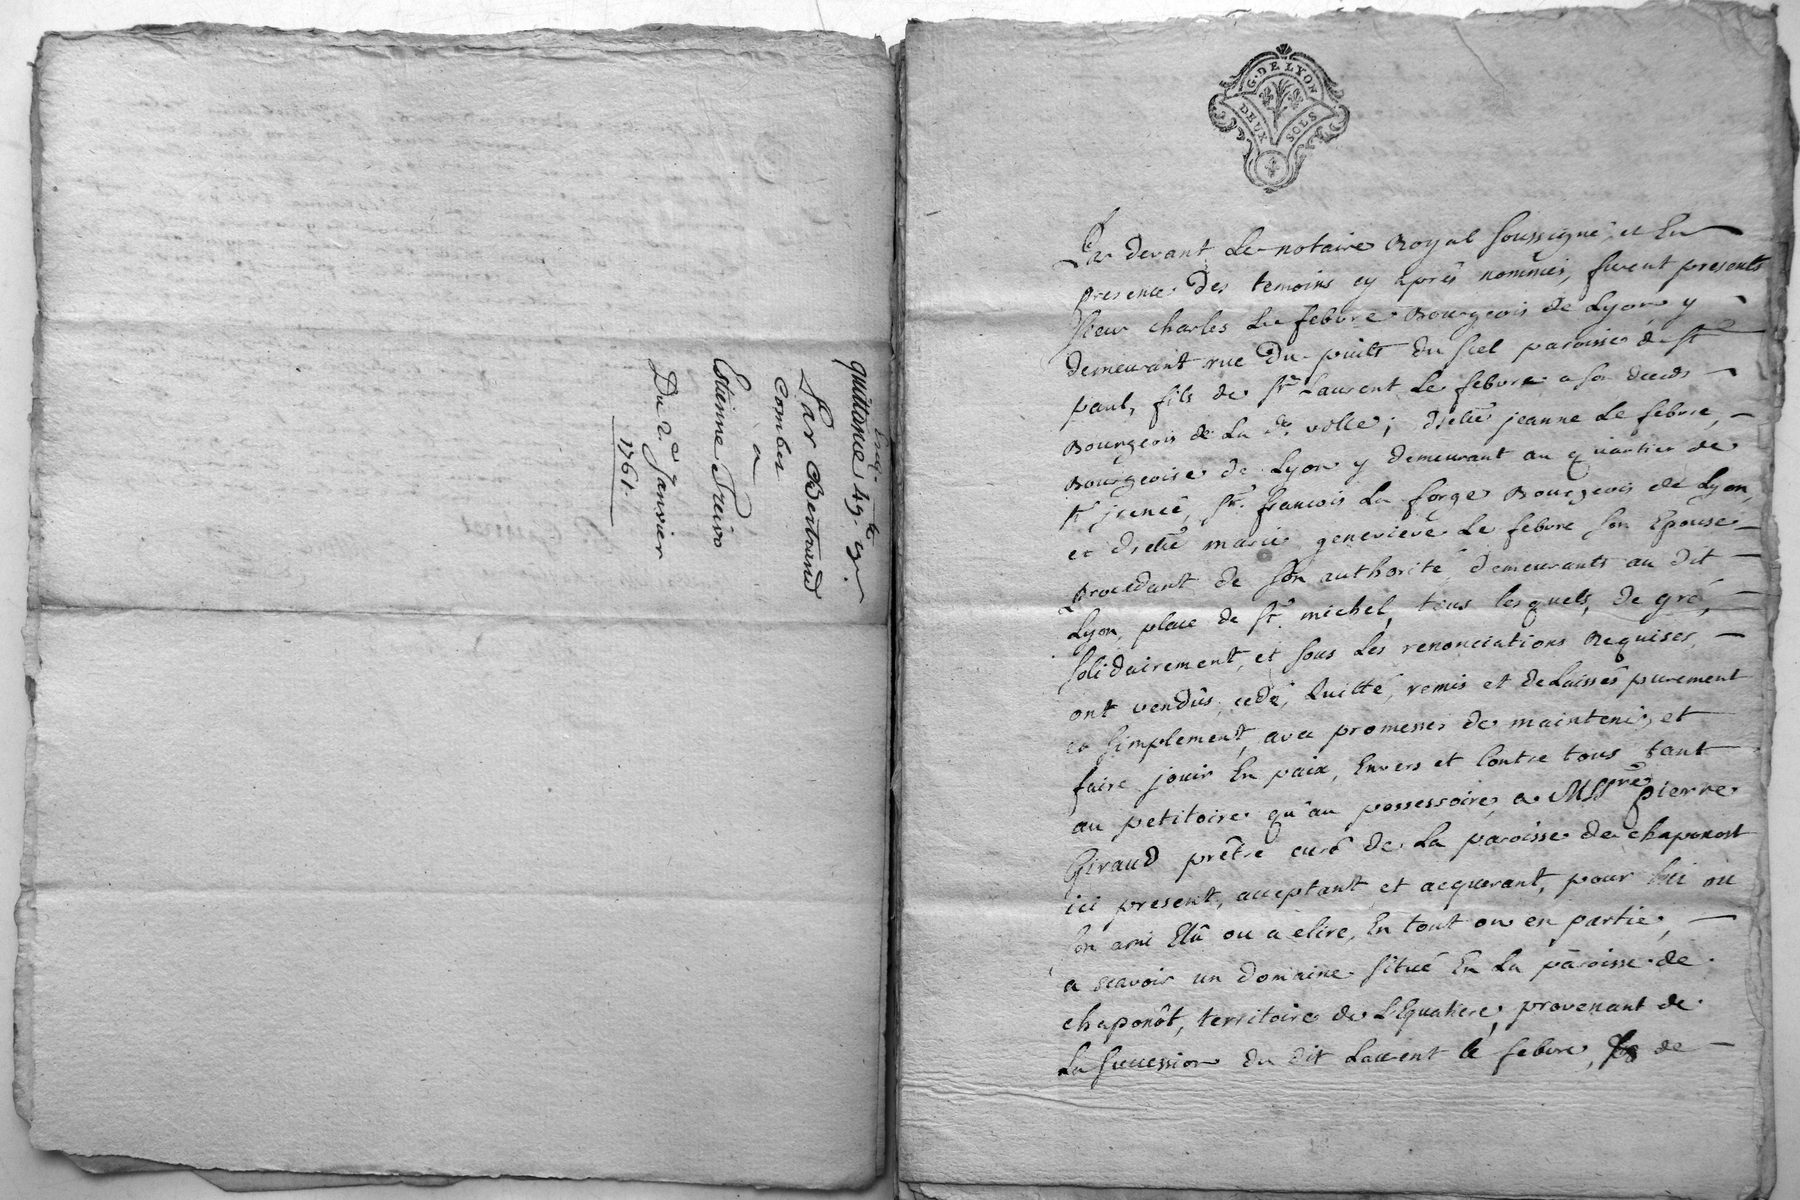 quittance 49.^te 9^s.
Par Bertrand
Combes
a
Estienne Preivo
Du 2.^e Janvier
1761.
G. DE LYON
DEUX SOLS
Par devant Le notaire Royal soussigné, et En
presence des temoins cy aprés nommés, furent presents
sieur charles Le febvre Bourgeois de Lyon, y
demeurant rue Du puits du sel paroisse de st
paul, fils de sr Laurent Le febvre a son deceds
Bourgeois de La de. ville; dselle jeanne Le febvre,
Bourgeoise de Lyon y demeurant au quartier de
st jrenée, sr. francois La forge Bourgeois de Lyon,
et dselle marie genevieve Le febvre son Epouse
procedant de son authorité demeurants au dit
Lyon, place de st. michel, tous lesquels, de gré,
solidairement, et sous les renonciations Requises,
ont vendûs, cedé, Quitté, remis et delaissés purement
et simplement, avec promesses de maintenir, et
faire jouir En paix, Envers et Contre tous tant
au petitoire qu'au possessoire, a Mssre pierre
Giraud prêtre curé de La paroisse de chaponost
ici present, acceptant, et acquerant, pour lui ou
son ami Elû ou a elire, En tout ou en partie,
a scavoir un domaine situé En La paroisse de
chaponôt, territoire de L'Equatiere, provenant de
La succession du dit Laurent le febvre, de